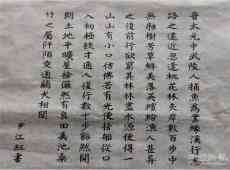 晉太元中武陵人捕魚為業緣溪行忘
路之遠近忽逢桃花林夾岸數百步中
無雜樹芳草鮮美落英繽紛漁人甚異
之復前行欲窮其林林盡水源便得一
山山有小口仿佛若有光便捨船從口
入初極狹才通人復行數十步豁然開
朗土地平曠屋舍儼然有良田美池桑
竹之屬阡陌交通雞犬相聞
江紅書